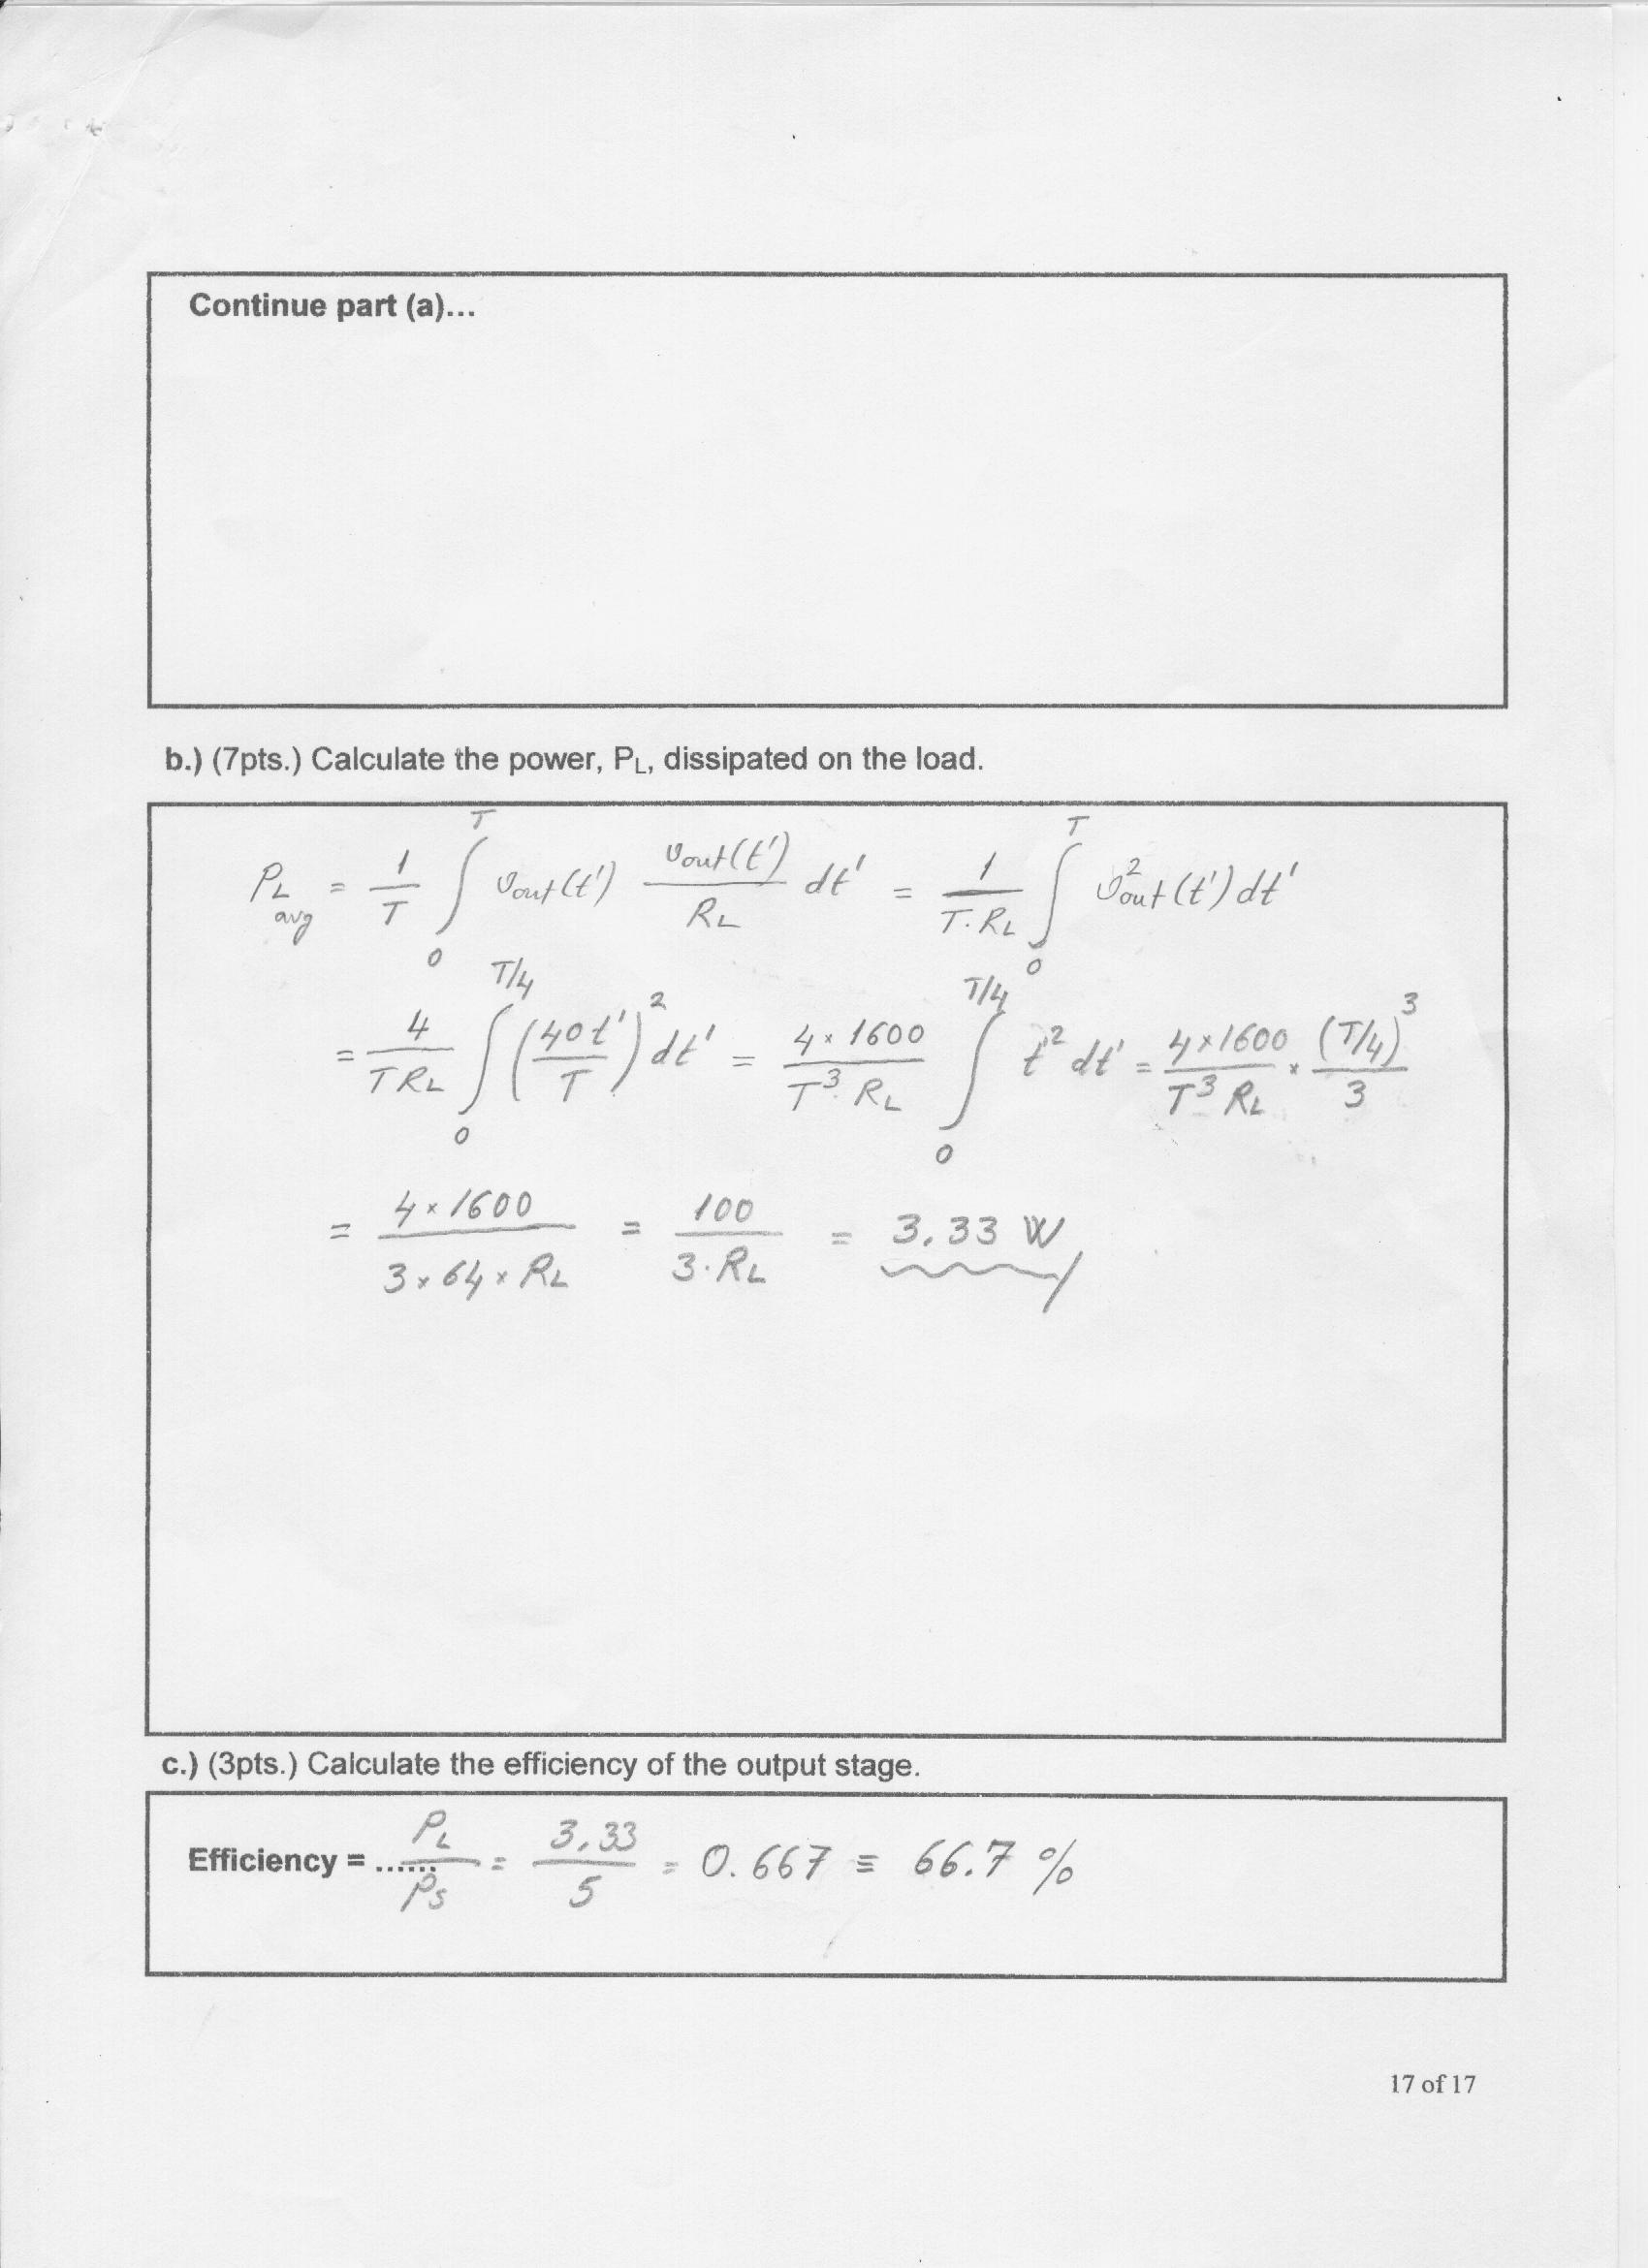 Continue part (a)...
b.) (7pts.) Calculate the power, PL, dissipated on the load.
PL avg = 1/T ∫₀ᵀ vout(t') vout(t')/RL dt' = 1/(T·RL) ∫₀ᵀ v²out(t') dt'
= 4/(T RL) ∫₀^(T/4) (40t'/T)² dt' = 4×1600/(T³·RL) ∫₀^(T/4) t'² dt' = 4×1600/(T³ RL) × (T/4)³/3
= 4×1600/(3×64×RL) = 100/(3·RL) = 3.33 W
c.) (3pts.) Calculate the efficiency of the output stage.
Efficiency = ...... PL/PS = 3.33/5 = 0.667 ≡ 66.7 %
17 of 17